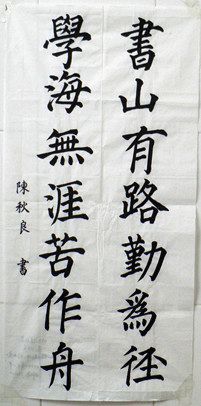 書山有路勤為徑
學海無涯苦作舟
陳秋良 書